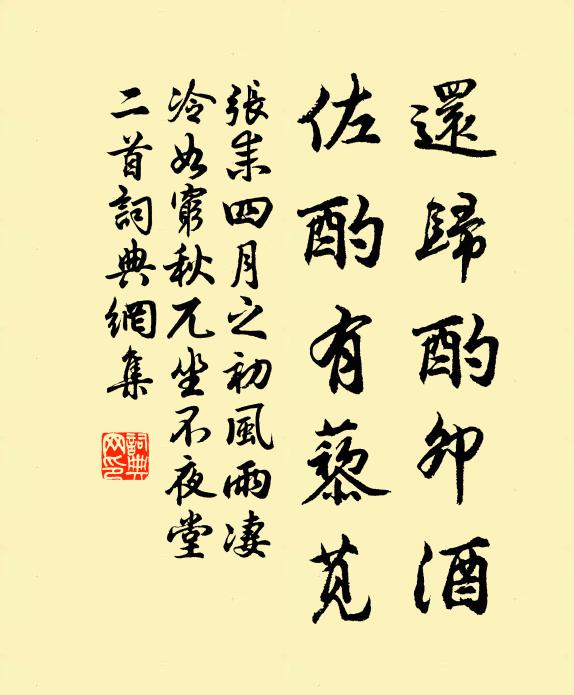 還歸酌卯酒
佐酌有藜莧
張耒四月之初風雨凄
冷如窮秋兀坐不夜堂
二首詞典網集
詞典网印